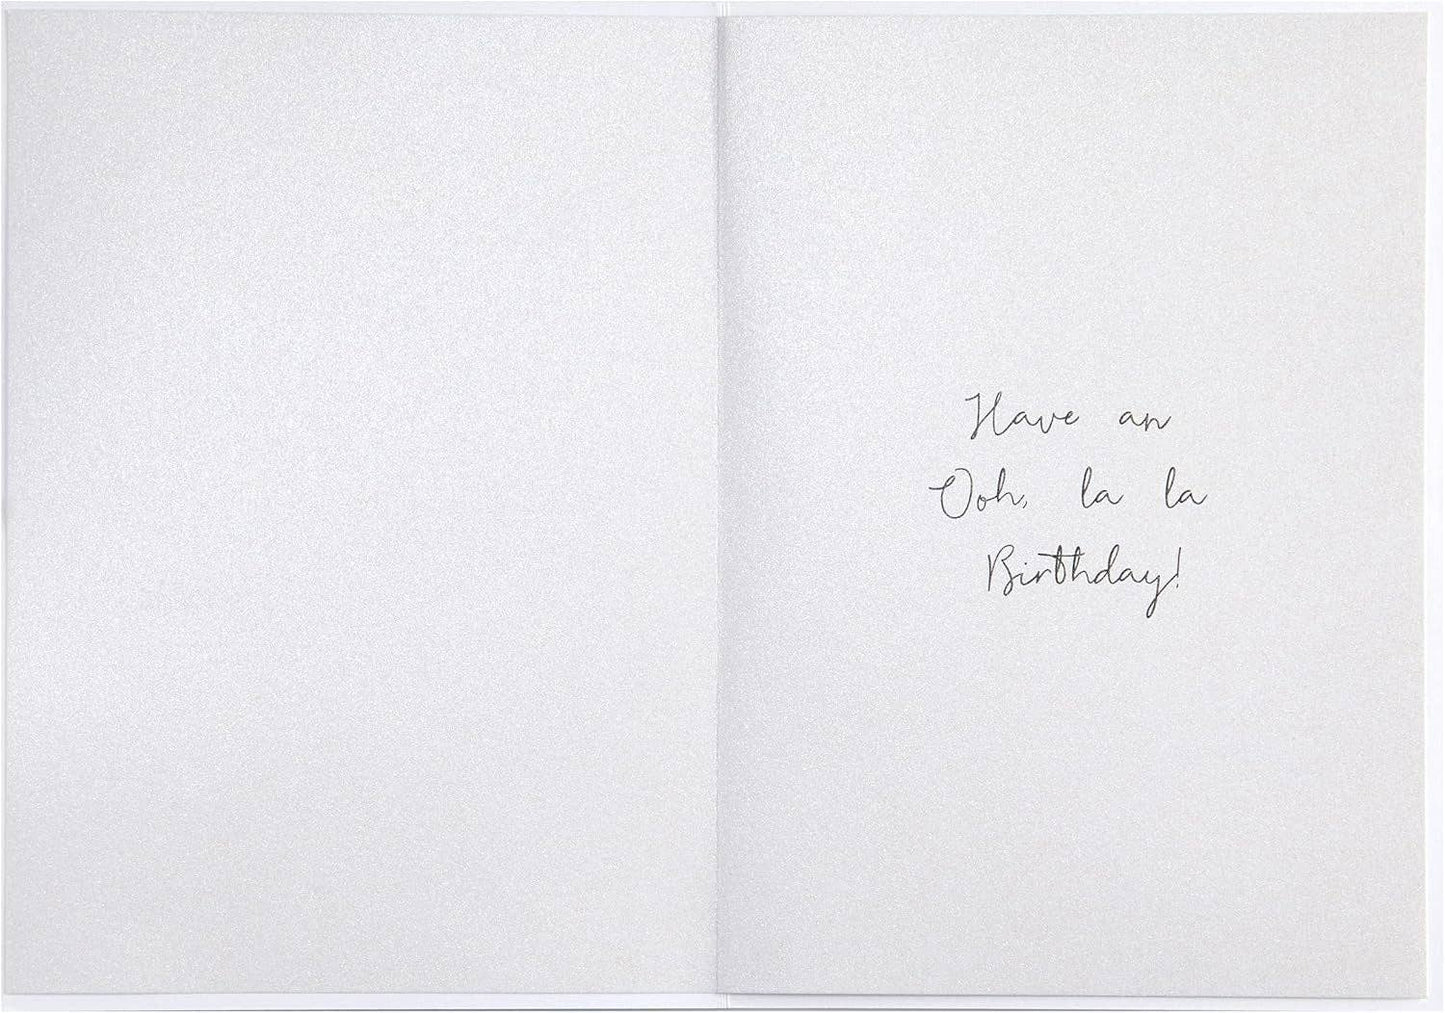 Have an
Ooh, la la
Birthday!